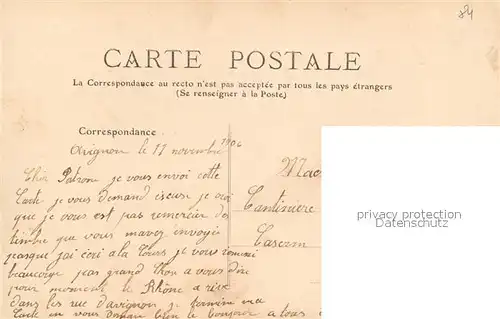 84
CARTE POSTALE
La Correspondance au recto n'est pas acceptée par tous les pays étrangers
(Se renseigner à la Poste.)
Correspondance
avignon le 11 novembre 1906
Cher Patron je vous envoi cette
Carte je vous demand je croi
que je vous est pas remercier des
timbre que vous mavez envoyé
pasque jai écri a la Tours je vous
beaucoup pas grand a vous dire
pour moment le Rhône a
dans les rue davignon je termine ma
Carte en vous bien le Bonjour a tous
Cantiniere
Casern
privacy protection
Datenschutz